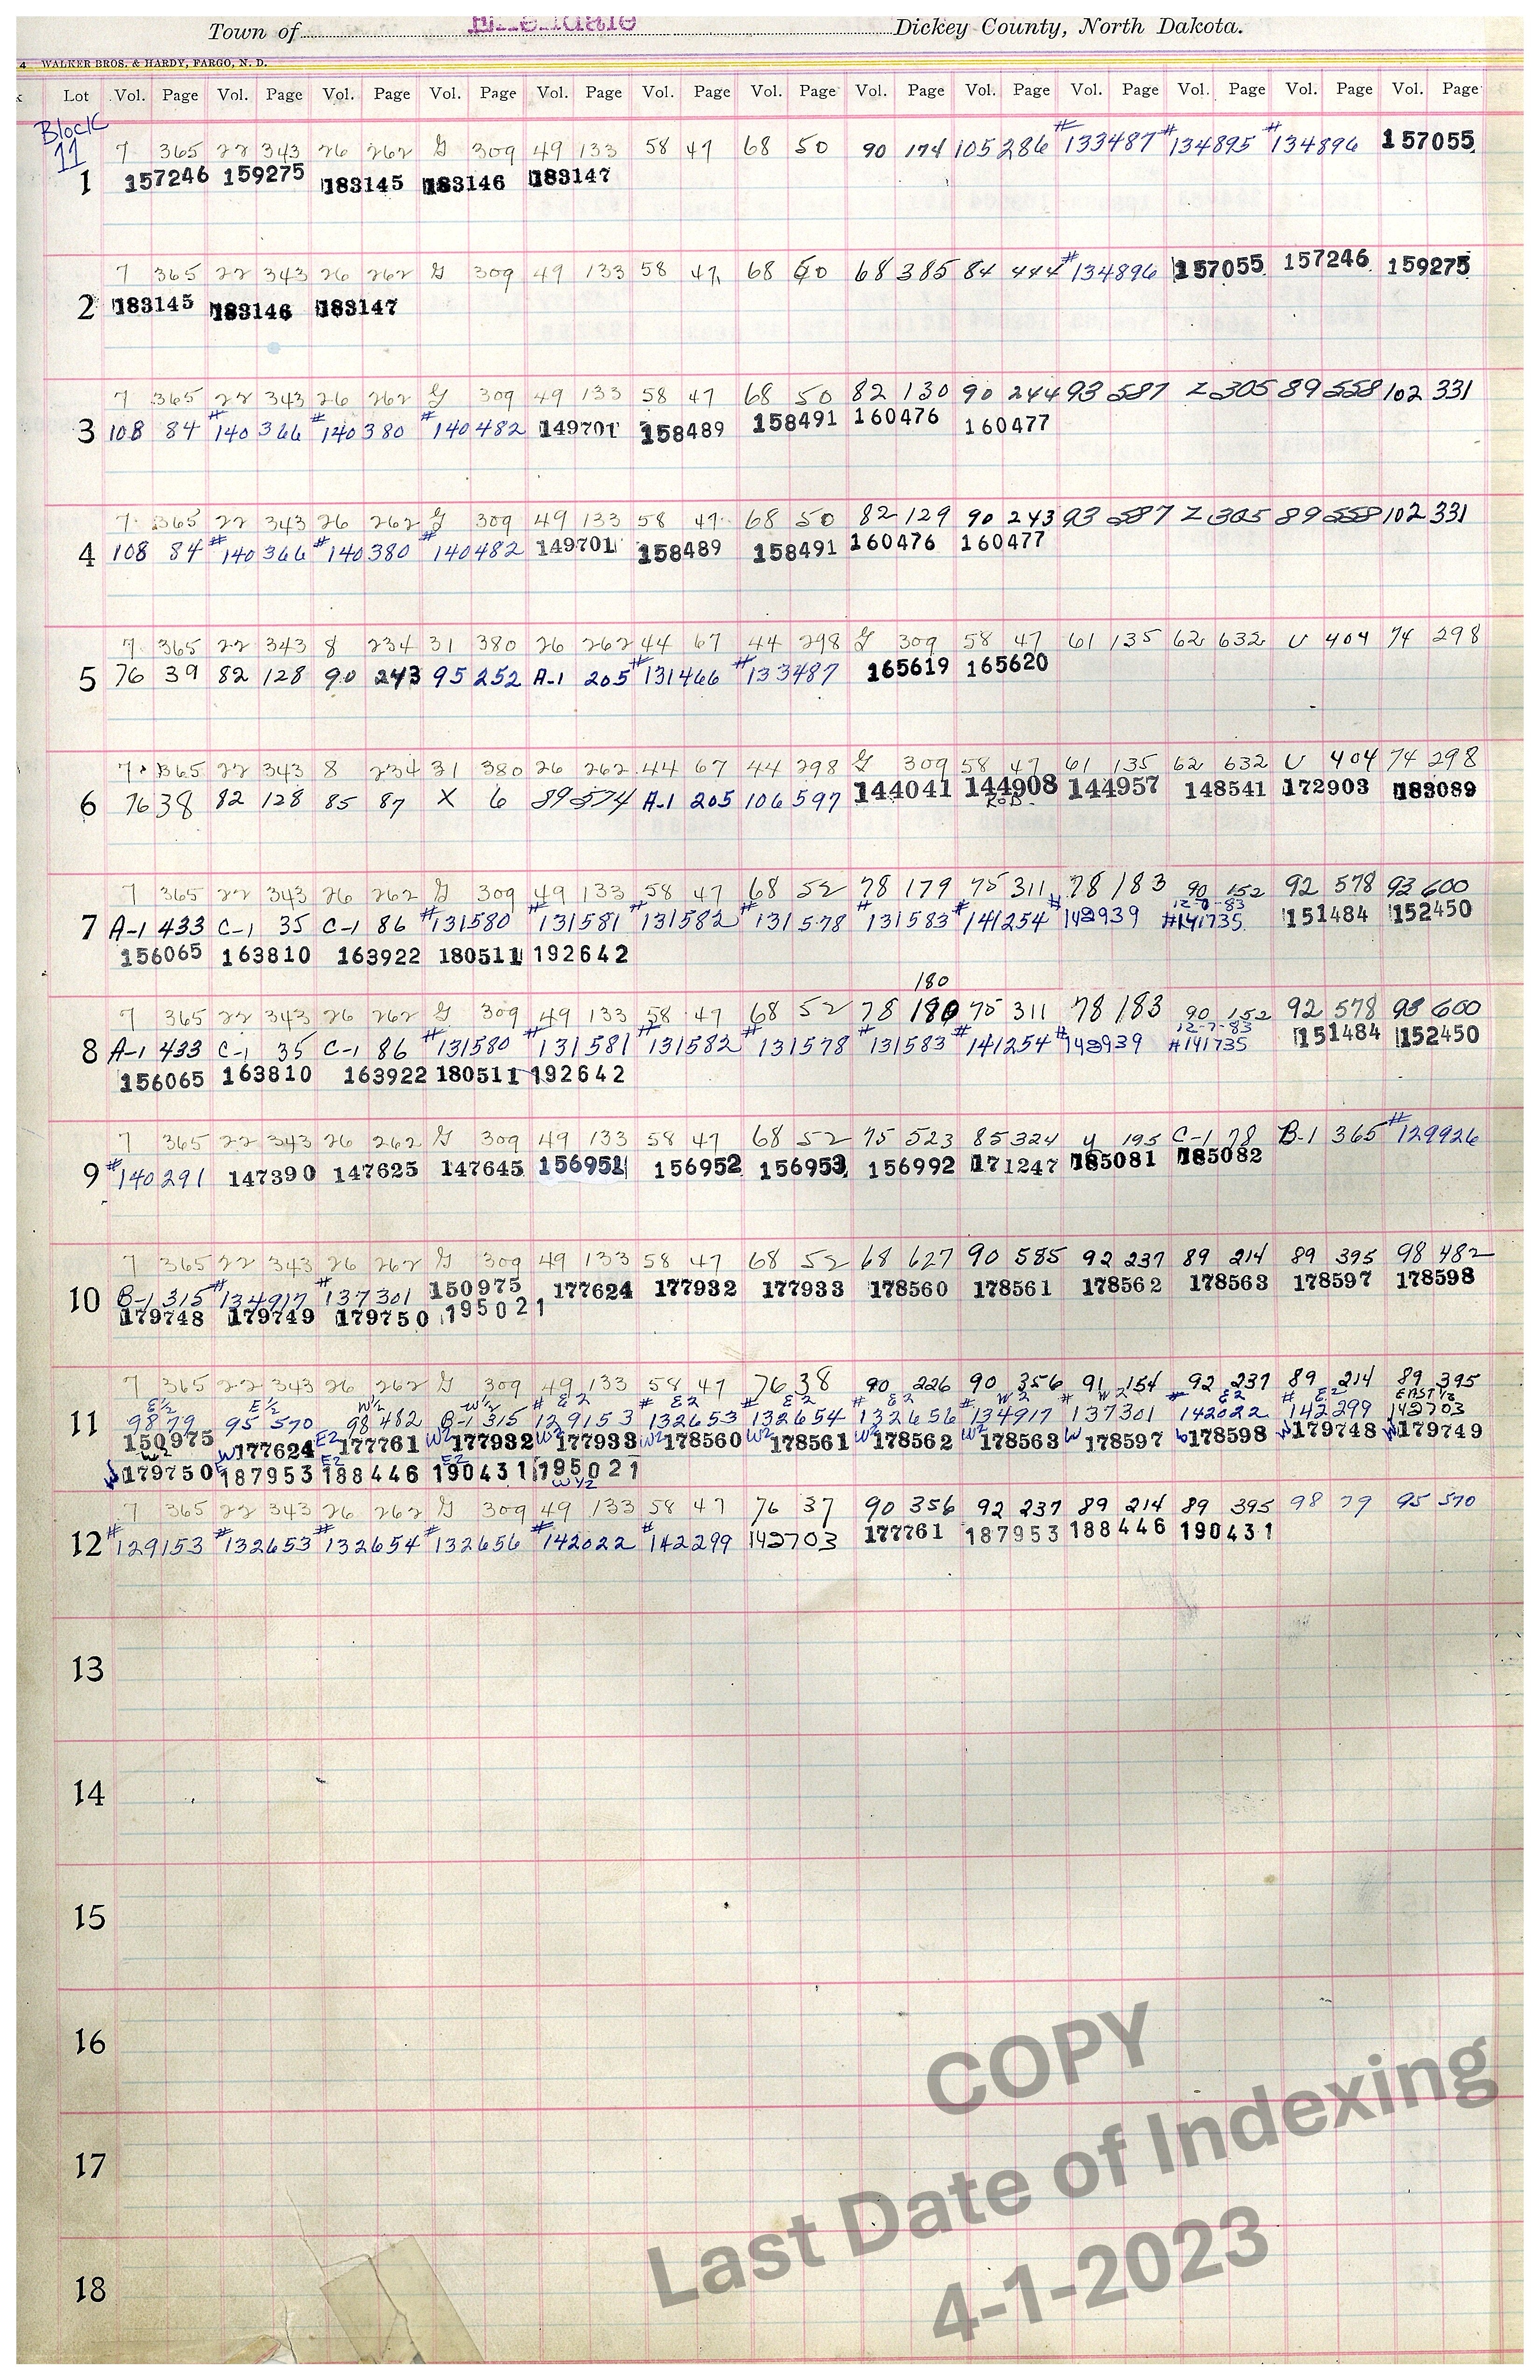 Town of Ellendale Dickey County, North Dakota.
4 WALKER BROS. & HARDY, FARGO, N. D.
k Lot Vol. Page Vol. Page Vol. Page Vol. Page Vol. Page Vol. Page Vol. Page Vol. Page Vol. Page Vol. Page Vol. Page Vol. Page Vol. Page
Block
11
7 365 22 343 26 262 G 309 49 133 58 47 68 50 90 174 105 286 #133487 #134895 #134896 157055
1 157246 159275 183145 183146 183147
7 365 22 343 26 262 G 309 49 133 58 47 68 50 68 385 84 444 #134896 157055 157246 159275
2 183145 183146 183147
7 365 22 343 26 262 G 309 49 133 58 47 68 50 82 130 90 244 93 587 Z 305 89 558 102 331
3 108 84 #140366 #140380 #140482 149701 158489 158491 160476 160477
7 365 22 343 26 262 G 309 49 133 58 47 68 50 82 129 90 243 93 587 Z 305 89 558 102 331
4 108 84 #140366 #140380 #140482 149701 158489 158491 160476 160477
7 365 22 343 8 234 31 380 26 262 44 67 44 298 G 309 58 47 61 135 62 632 U 404 74 298
5 76 39 82 128 90 243 95 252 A-1 205 #131466 #133487 165619 165620
7 365 22 343 8 234 31 380 26 262 44 67 44 298 G 309 58 47 61 135 62 632 U 404 74 298
6 76 38 82 128 85 87 X 6 89 574 A-1 205 106 597 144041 144908 144957 148541 172903 183089
ROD
7 365 22 343 26 262 G 309 49 133 58 47 68 52 78 179 75 311 78 183 90 152 92 578 93 600
7 A-1 433 C-1 35 C-1 86 #131580 #131581 #131582 #131578 #131583 #141254 #142939 #141735 151484 152450
156065 163810 163922 180511 192642
180
7 365 22 343 26 262 G 309 49 133 58 47 68 52 78 180 75 311 78 183 90 152 92 578 93 600
12-7-83
8 A-1 433 C-1 35 C-1 86 #131580 #131581 #131582 #131578 #131583 #141254 #142939 #141735 151484 152450
156065 163810 163922 180511 192642
7 365 22 343 26 262 G 309 49 133 58 47 68 52 75 523 85 324 y 195 C-1 78 B-1 365 #129926
9 #140291 147390 147625 147645 156951 156952 156953 156992 171247 185081 185082
7 365 22 343 26 262 G 309 49 133 58 47 68 52 68 627 90 585 92 237 89 214 89 395 98 482
10 B-1 315 #134917 #137301 150975 177624 177932 177933 178560 178561 178562 178563 178597 178598
179748 179749 179750 195021
7 365 22 343 26 262 G 309 49 133 58 47 76 38 90 226 90 356 91 154 92 237 89 214 89 395
E½ E½ W½ W½ # E2 # E2 # E2 # E2 # W2 # W2 # E2 # E2 EAST ½
11 98 79 95 570 98 482 B-1 315 129153 132653 132654 132656 134917 137301 142022 142299 142703
150975 W177624 E2 177761 W2 177932 W2 177933 W2 178560 W2 178561 W2 178562 178563 W 178597 W 178598 W 179748 W 179749
W 179750 E 187953 E2 188446 E2 190431 195021
W½
7 365 22 343 26 262 G 309 49 133 58 47 76 37 90 356 92 237 89 214 89 395 98 79 95 570
12 #129153 #132653 #132654 #132656 #142022 #142299 142703 177761 187953 188446 190431
13
14
15
16
17
18
COPY
Last Date of Indexing
4-1-2023